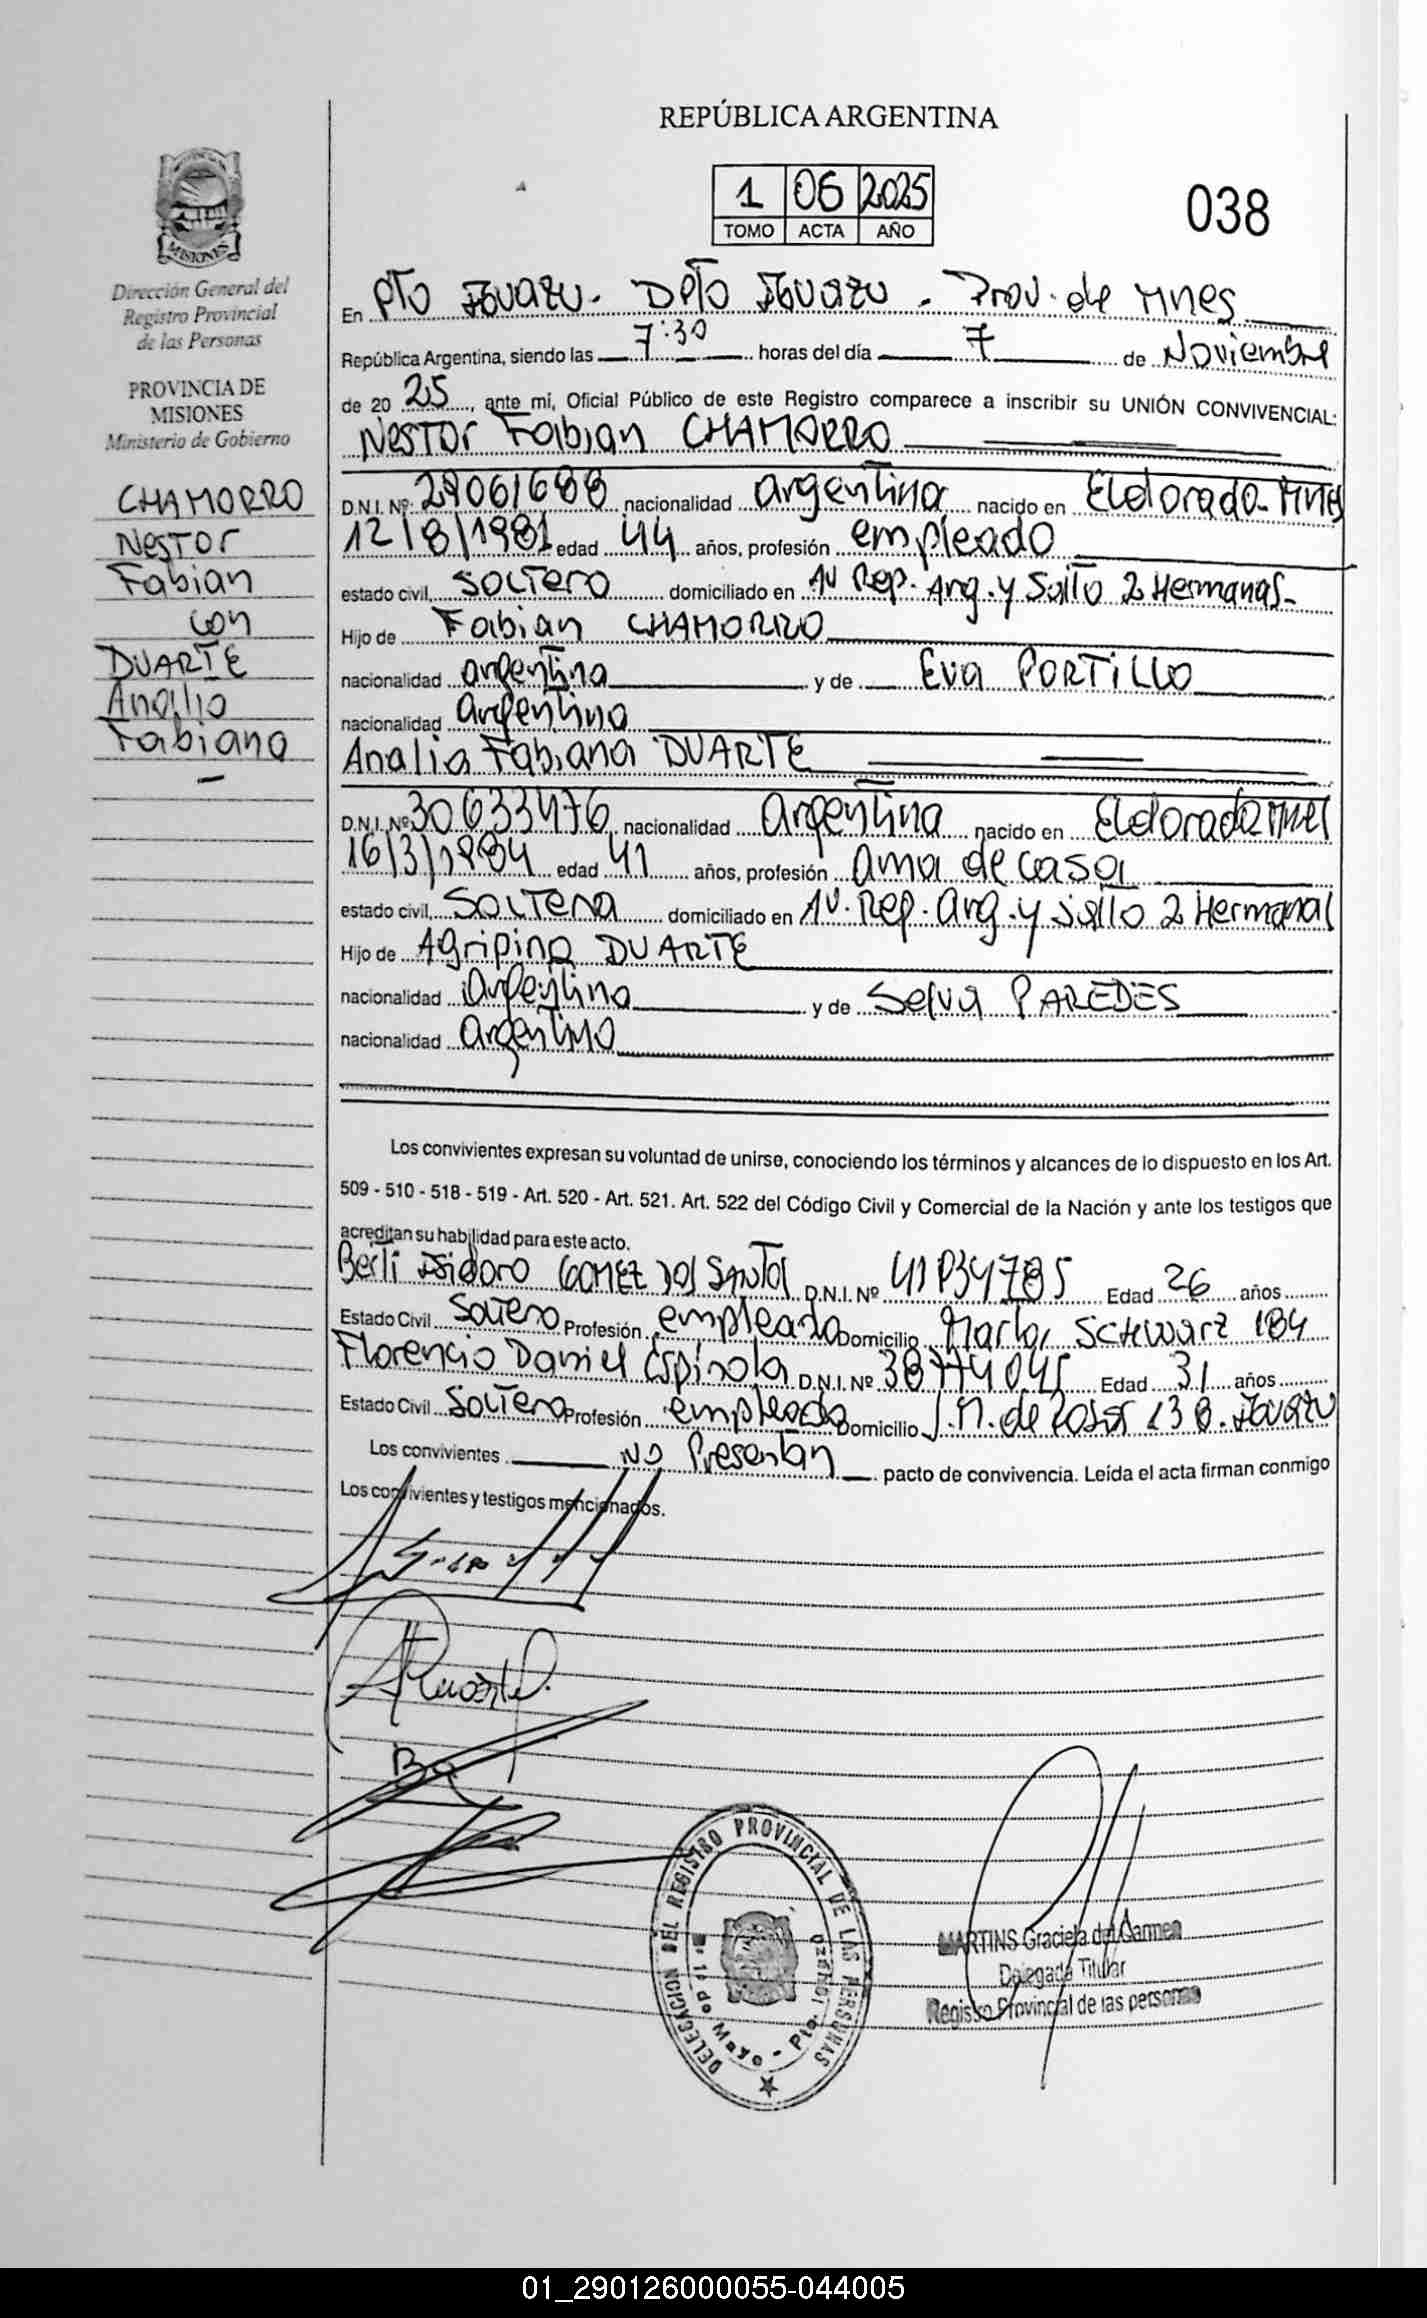 REPÚBLICA ARGENTINA
1 06 2025
TOMO ACTA AÑO
038
MISIONES
Dirección General del
Registro Provincial
de las Personas
PROVINCIA DE
MISIONES
Ministerio de Gobierno
CHAMORRO
Nestor
Fabian
con
DUARTE
Analia
Fabiana
En Pto Iguazu - Dpto Iguazu - Prov. de Mnes
República Argentina, siendo las 7:30 horas del día 7 de Noviembre
de 20 25, ante mi, Oficial Público de este Registro comparece a inscribir su UNIÓN CONVIVENCIAL:
Nestor Fabian CHAMORRO
D.N.I. Nº 29061688 nacionalidad argentina nacido en Eldorado - Mnes
12/8/1981 edad 44 años, profesión empleado
estado civil, soltero domiciliado en Av Rep. Arg. y Salto 2 Hermanas -
Hijo de Fabian CHAMORRO
nacionalidad argentina y de Eva PORTILLO
nacionalidad argentina
Analia Fabiana DUARTE
D.N.I. Nº 30633476 nacionalidad Argentina nacido en Eldorado Mnes
16/3/1984 edad 41 años, profesión ama de casa
estado civil, soltera domiciliado en Av. Rep. Arg. y Salto 2 Hermanas
Hijo de Agripino DUARTE
nacionalidad Argentina y de Selva PAREDES
nacionalidad argentina
Los convivientes expresan su voluntad de unirse, conociendo los términos y alcances de lo dispuesto en los Art.
509 - 510 - 518 - 519 - Art. 520 - Art. 521. Art. 522 del Código Civil y Comercial de la Nación y ante los testigos que
acreditan su habilidad para este acto.
Berli Isidoro GOMEZ DOS SANTOS D.N.I. Nº Edad 26 años
Estado Civil soltero Profesión empleado Domicilio Marta Schwarz 184
Florencio Daniel Espinola D.N.I. Nº Edad 31 años
Estado Civil soltero Profesión empleado Domicilio J. M. de Rosas 138. Iguazu
Los convivientes NO Presentan pacto de convivencia. Leída el acta firman conmigo
Los convivientes y testigos mencionados.
DELEGACION DEL REGISTRO PROVINCIAL DE LAS PERSONAS
Bº 1º de Mayo - Pto. IGUAZU
MARTINS Graciela del Carmen
Delegada Titular
Registro Provincial de las personas
01_290126000055-044005